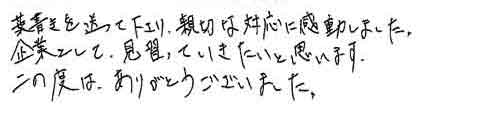 葉書きを送って下さり、親切な対応に感動しました。
企業として、見習っていきたいと思います。
この度は、ありがとうございました。